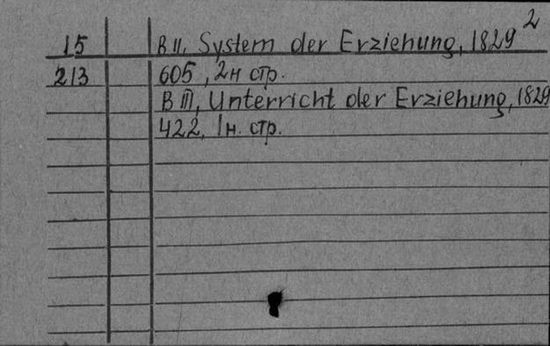 2
15 B II, System der Erziehung, 1829
213 605, 2н стр.
B III, Unterricht der Erziehung, 1829
422, 1н. стр.